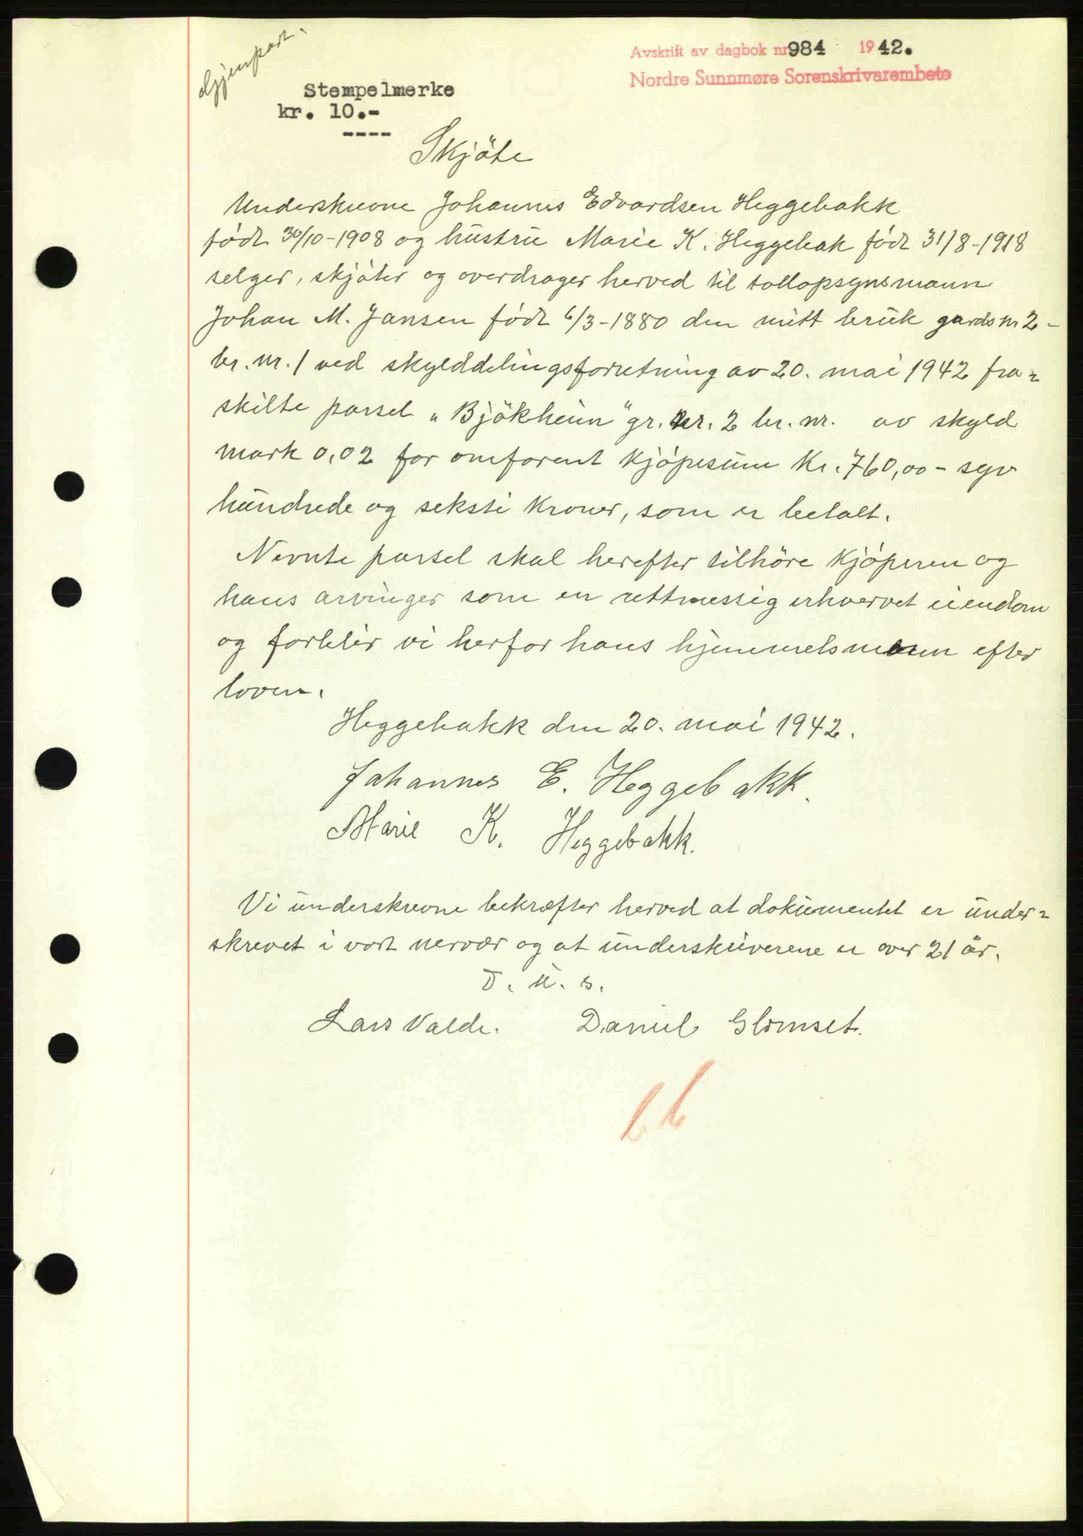 Gjenpart.
Avskrift av dagbok nr 984 1942.
Nordre Sunnmøre Sorenskrivarembete
Stempelmerke
kr. 10.-
----
Skjöte
Underskrevne Johannes Edvardsen Heggebakk
født 30/10-1908 og hustru Marie K. Heggebak født 31/8-1918
selger, skjöter og overdrager herved til tollopsynsmann
Johan M. Jansen født 6/3-1880 den mitt bruk gardsnr 2-
br. nr. 1 ved skylddelingsforretning av 20. mai 1942 fra-
skilte parsel "Bjökheim" gr. nr. 2 br. nr. av skyld
mark 0,02 for omforent kjøpesum Kr. 760,00 - syv
hundrede og seksti kroner, som er betalt.
Nevnte parsel skal herefter tilhöre kjöperen og
hans arvinger som en rettmessig erhvervet eiendom
og forblir vi herfor hans hjemmelsmenn efter
loven.
Heggebakk den 20. mai 1942.
Johannes E. Heggebakk.
Marie K. Heggebakk.
Vi underskrevne bekræfter herved at dokumentet er under-
skrevet i vort nervær og at underskriverene er over 21 år.
D. u. s.
Lars Valde. Daniel Glomset.